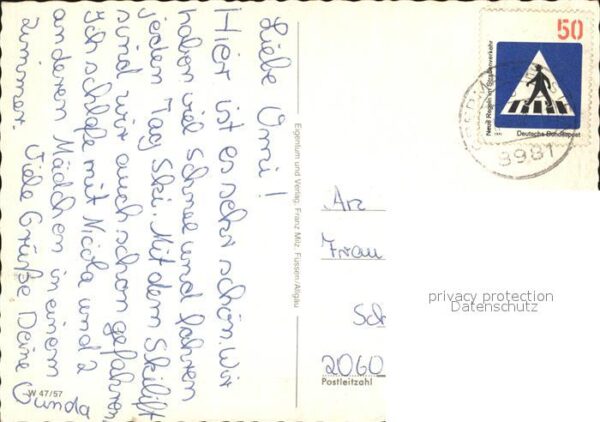 Liebe Omi!
Hier ist es sehr schön. Wir
haben viel Schnee und fahren
jeden Tag Ski. Mit dem Skilift
sind wir auch schon gefahren
Ich schlafe mit Nicola und 2
anderen Mädchen in einem
zimmer. Viele Grüße Deine
Gunda
W 47/57
Eigentum und Verlag, Franz Milz, Füssen/Allgäu
50
Neue Regeln im Straßenverkehr
Deutsche Bundespost
8981
Frau
2060
Postleitzahl
privacy protection
Datenschutz